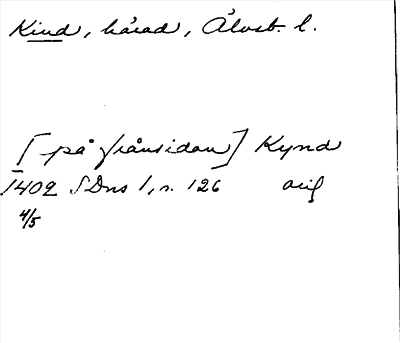 Kind, härad, Älvsb. l.
[på frånsidan] Kynd
1402 SDns 1, s. 126 orig
4/5